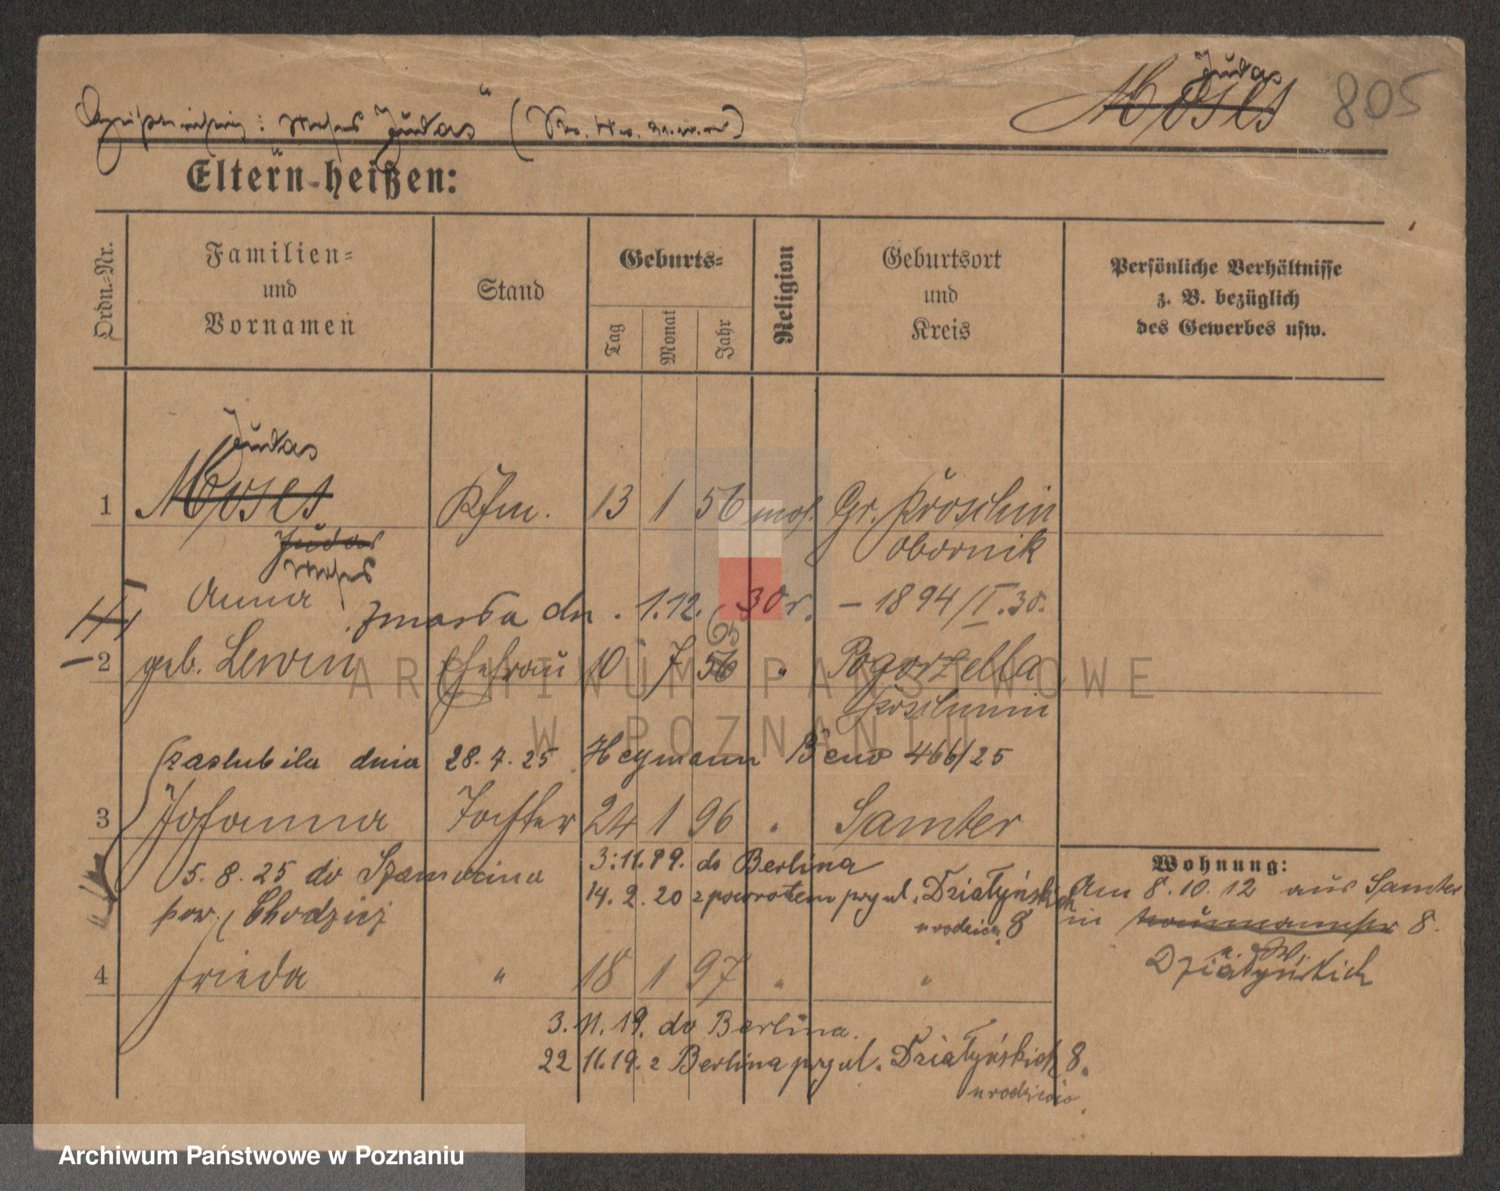 Judas
Moses 805
Moses Judas
Eltern heißen:
Ordn.-Nr.
Familien-
und
Vornamen
Stand
Geburts-
Tag
Monat
Jahr
Religion
Geburtsort
und
Kreis
Persönliche Verhältnisse
z. B. bezüglich
des Gewerbes usw.
Judas
1 Moses Kfm. 13 1 56 mos. Gr. Kroschin
Judas Obornik
Moses
Anna zmarła dn. 1.12. 30 r. – 1894/I.30.
2 geb. Lewin Ehefrau 10 7 56 " Pogorzella
Koschmin
zaslubila dnia 28.7.25 Heymann Beno 466/25
3 Johanna Tochter 24 1 96 " Samter
5.8.25 do Szamocina
pow. Chodzież
3.11.19. do Berlina
14.2.20 z powrotem przy ul. Działyńskich
u rodziców 8
4 Frieda " 18 1 97 " "
3.11.19. do Berlina.
22 11.19. z Berlina przy ul. Działyńskich 8.
u rodziców
Wohnung:
Am 8.10.12 aus Samter
in Naumannstr 8.
Działyńskich
ARCHIWUM PAŃSTWOWE
W POZNANIU
Archiwum Państwowe w Poznaniu